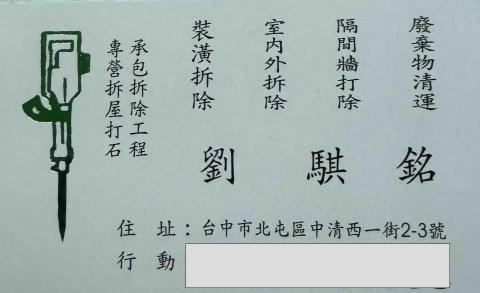 承包拆除工程
專營拆屋打石
裝潢拆除
室內外拆除
隔間牆打除
廢棄物清運
劉 騏 銘
住 址：台中市北屯區中清西一街2-3號
行 動